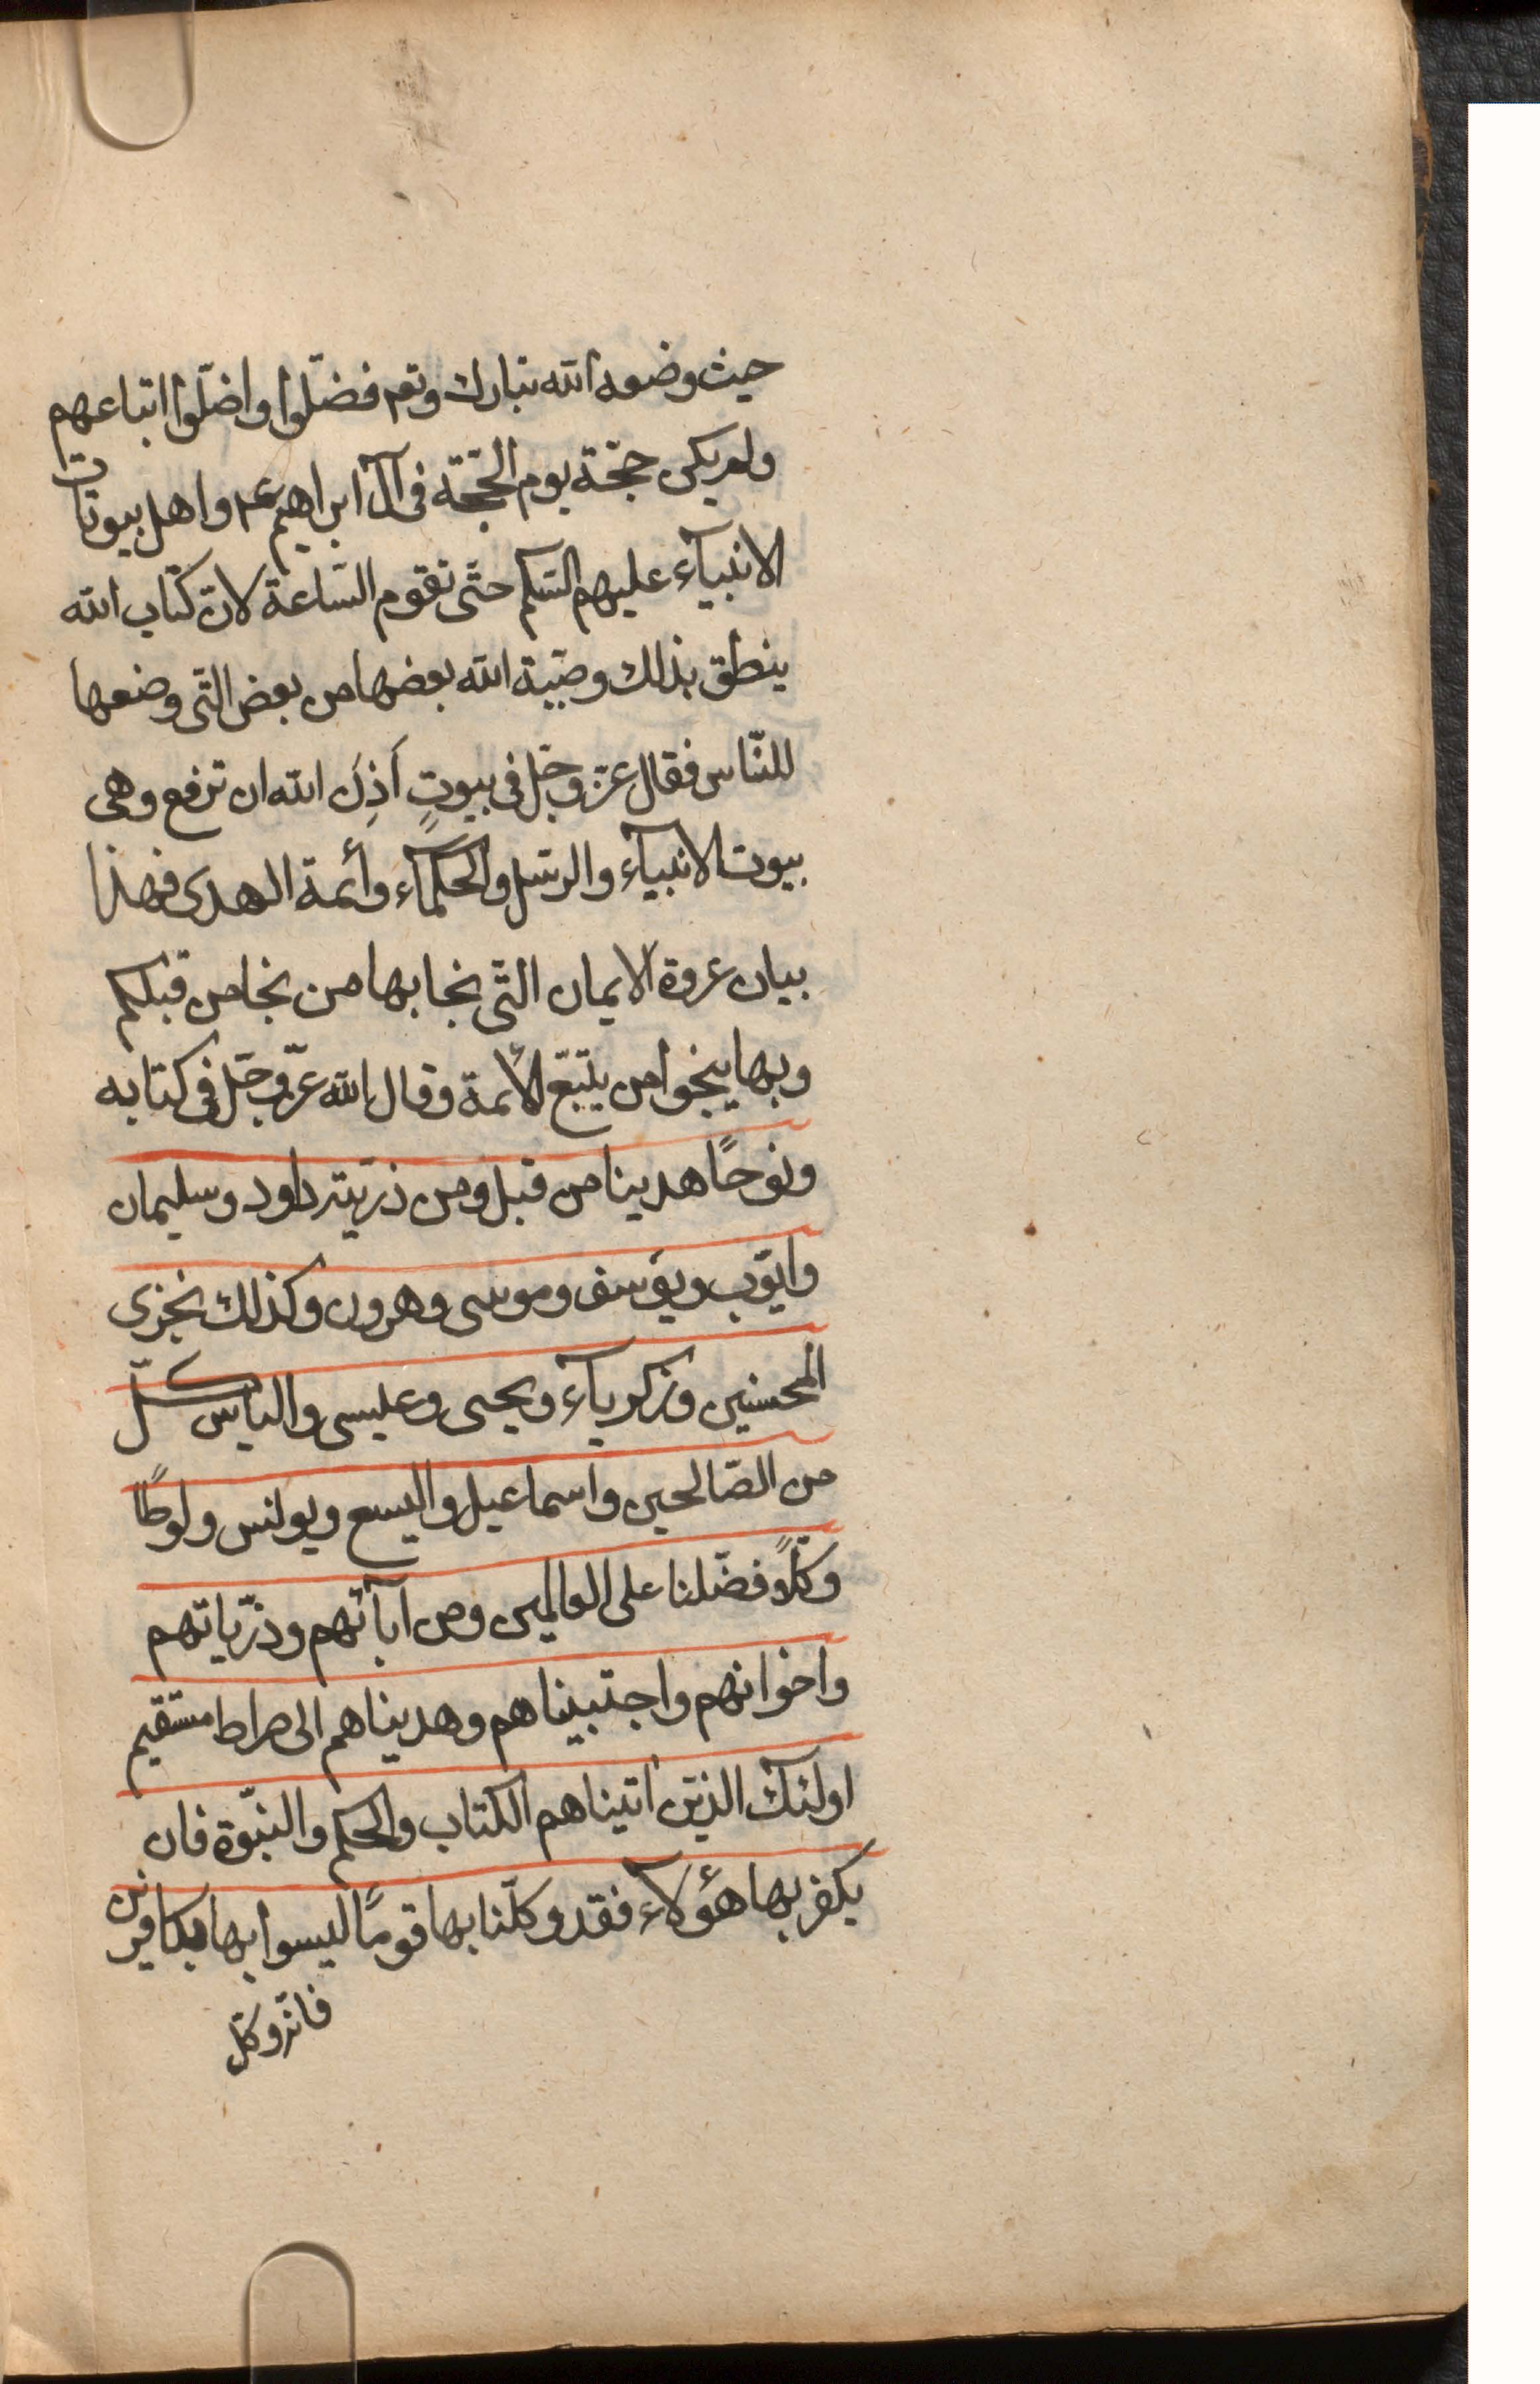 حيث وضعه الله تبارك وتعه فضلّوا واضلّوا اتباعهم
ولم يكن حجّة يوم الحجّة فى آل ابراهيم عم واهل بيوتات
الانبيآء عليهم السّلم حتّى تقوم السّاعة لانّ كتاب الله
ينطق بذلك وصيّة الله بعضها من بعض الّتى وضعها
للنّاس فقال عزّ وجلّ فى بيوتٍ اَذِنَ الله ان ترفع وهى
بيوت الانبيآء والرّسل والحكمآء وأئمة الهدى فهذا
بيان عروة الايمان الّتى نجا بها من نجا من قبلكم
وبها ينجوا من يتّبع الأئمة وقال الله عزّ وجلّ فى كتابه
ونوحًا هدينا من قبل ومن ذرّيّته داود وسليمان
وايّوب ويوسف وموسى وهرون وكذلك نجزى
المحسنين وزكريآء ويحيى وعيسى والياس كلّ
من الصّالحين واسماعيل واليسع ويونس ولوطًا
وكلًّا فضّلنا على العالمين ومن ابآئهم وذرّياتهم
واخوانهم واجتبيناهم وهديناهم الى صراط مستقيم
اولئك الذين اتيناهم الكتاب والحكم والنبّوة فان
يكفر بها هؤلآء فقد وكلّنا بها قومًا ليسوا بها بكافرين
فانّه وكّل